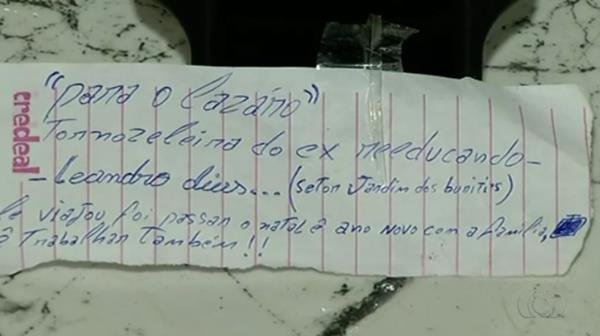 "para o Lazáro"
Tornozeleira do ex reeducando-
-Leandro dias... (setor Jardim dos buritis)
le viajou foi passar o natal e ano Novo com a família,
Trabalhar também!!
credeal